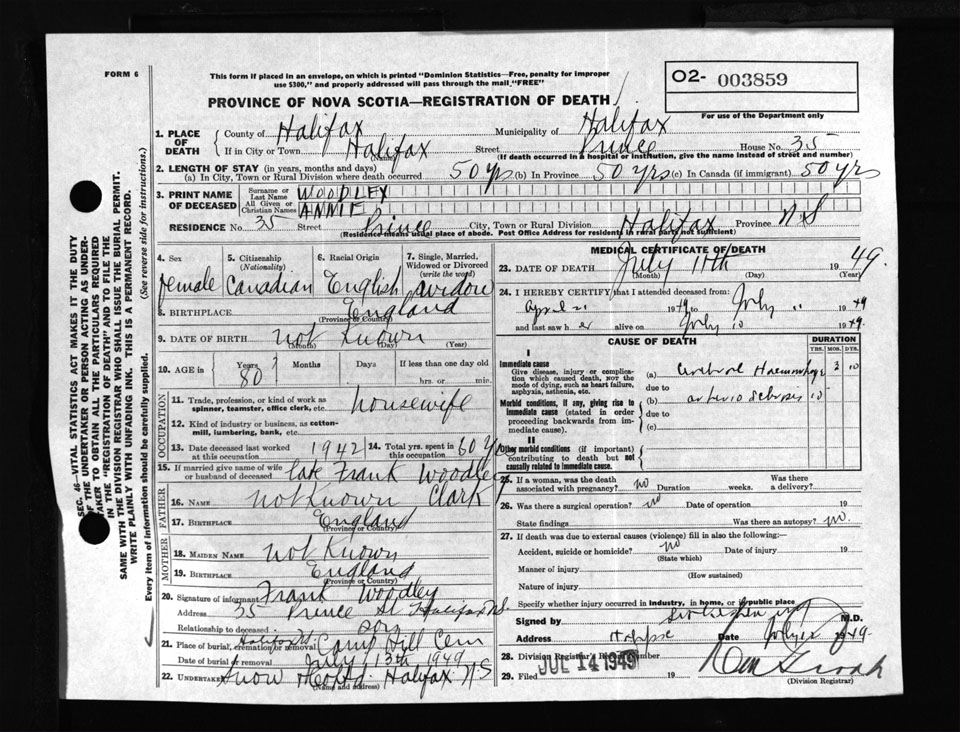 FORM 6
This form if placed in an envelope, on which is printed "Dominion Statistics—Free, penalty for improper
use $300," and properly addressed will pass through the mail "FREE"
O2- 003859
For use of the Department only
PROVINCE OF NOVA SCOTIA—REGISTRATION OF DEATH
1. PLACE OF DEATH County of Halifax Municipality of Halifax
If in City or Town Halifax (Name) Street Prince House No. 35
(If death occurred in a hospital or institution, give the name instead of street and number)
2. LENGTH OF STAY (in years, months and days)
(a) In City, Town or Rural Division where death occurred 50 yrs (b) In Province 50 yrs (c) In Canada (if immigrant) 50 yrs
3. PRINT NAME OF DECEASED Surname or Last Name WOODLEY
All Given or Christian Names ANNIE
RESIDENCE No. 35 Street Prince City, Town or Rural Division Halifax Province N.S
(Residence means usual place of abode. Post Office Address for residents in rural parts not sufficient)
4. Sex female
5. Citizenship (Nationality) Canadian
6. Racial Origin English
7. Single, Married, Widowed or Divorced (write the word) widow
8. BIRTHPLACE England
(Province or Country)
9. DATE OF BIRTH not Known
(Month) (Day) (Year)
10. AGE in Years 80 Months Days If less than one day old hrs. or min.
OCCUPATION
11. Trade, profession, or kind of work as spinner, teamster, office clerk, etc. housewife
12. Kind of industry or business, as cotton-mill, lumbering, bank, etc.
13. Date deceased last worked at this occupation 1942 14. Total yrs. spent in this occupation 60 yrs
15. If married give name of wife or husband of deceased late Frank Woodley
FATHER
16. NAME not Known Clark
17. BIRTHPLACE England
(Province or Country)
MOTHER
18. MAIDEN NAME not Known
19. BIRTHPLACE England
(Province or Country)
20. Signature of informant Frank Woodley
Address 35 Prince St Halifax N.S.
Relationship to deceased son
21. Place of burial, cremation or removal Camp Hill Cem
Date of burial or removal July 13th 1949
22. Undertaker Snow & Co Ltd. Halifax N S
(Name and address)
MEDICAL CERTIFICATE OF DEATH
23. DATE OF DEATH July 11th 1949.
(Month) (Day) (Year)
24. I HEREBY CERTIFY that I attended deceased from:
April 21 1949 to July 11 1949
and last saw her alive on July 10 1949.
CAUSE OF DEATH
DURATION
YRS. MOS. DYS.
I
Immediate cause
Give disease, injury or complication which caused death, not the mode of dying, such as heart failure, asphyxia, asthenia, etc.
(a) Cerebral Haemorrhage 10
due to
Morbid conditions, if any, giving rise to immediate cause (stated in order proceeding backwards from immediate cause).
(b) arterio Sclerosis 10
due to
(c)
II
Other morbid conditions (if important) contributing to death but not causally related to immediate cause.
25. If a woman, was the death associated with pregnancy? no Duration weeks. Was there a delivery?
26. Was there a surgical operation? no Date of operation 19
State findings Was there an autopsy? no.
27. If death was due to external causes (violence) fill in also the following:
Accident, suicide or homicide? no Date of injury 19
(State which)
Manner of injury
(How sustained)
Nature of injury
Specify whether injury occurred in industry, in home, or in public place
Signed by M.D.
Address Date July 1949.
28. Division Registrar's Record Number
JUL 14 1949
29. Filed 19
(Division Registrar)
SEC. 46—VITAL STATISTICS ACT MAKES IT THE DUTY
OF THE UNDERTAKER OR PERSON ACTING AS UNDER-
TAKER TO OBTAIN ALL THE PARTICULARS REQUIRED
IN THE "REGISTRATION OF DEATH" AND TO FILE THE
SAME WITH THE DIVISION REGISTRAR WHO SHALL ISSUE THE BURIAL PERMIT.
WRITE PLAINLY WITH UNFADING INK. THIS IS A PERMANENT RECORD.
Every item of information should be carefully supplied. (See reverse side for instructions.)